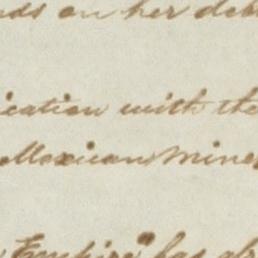 nds on her deb
ication with the
Mexican mine
Empire" has ab